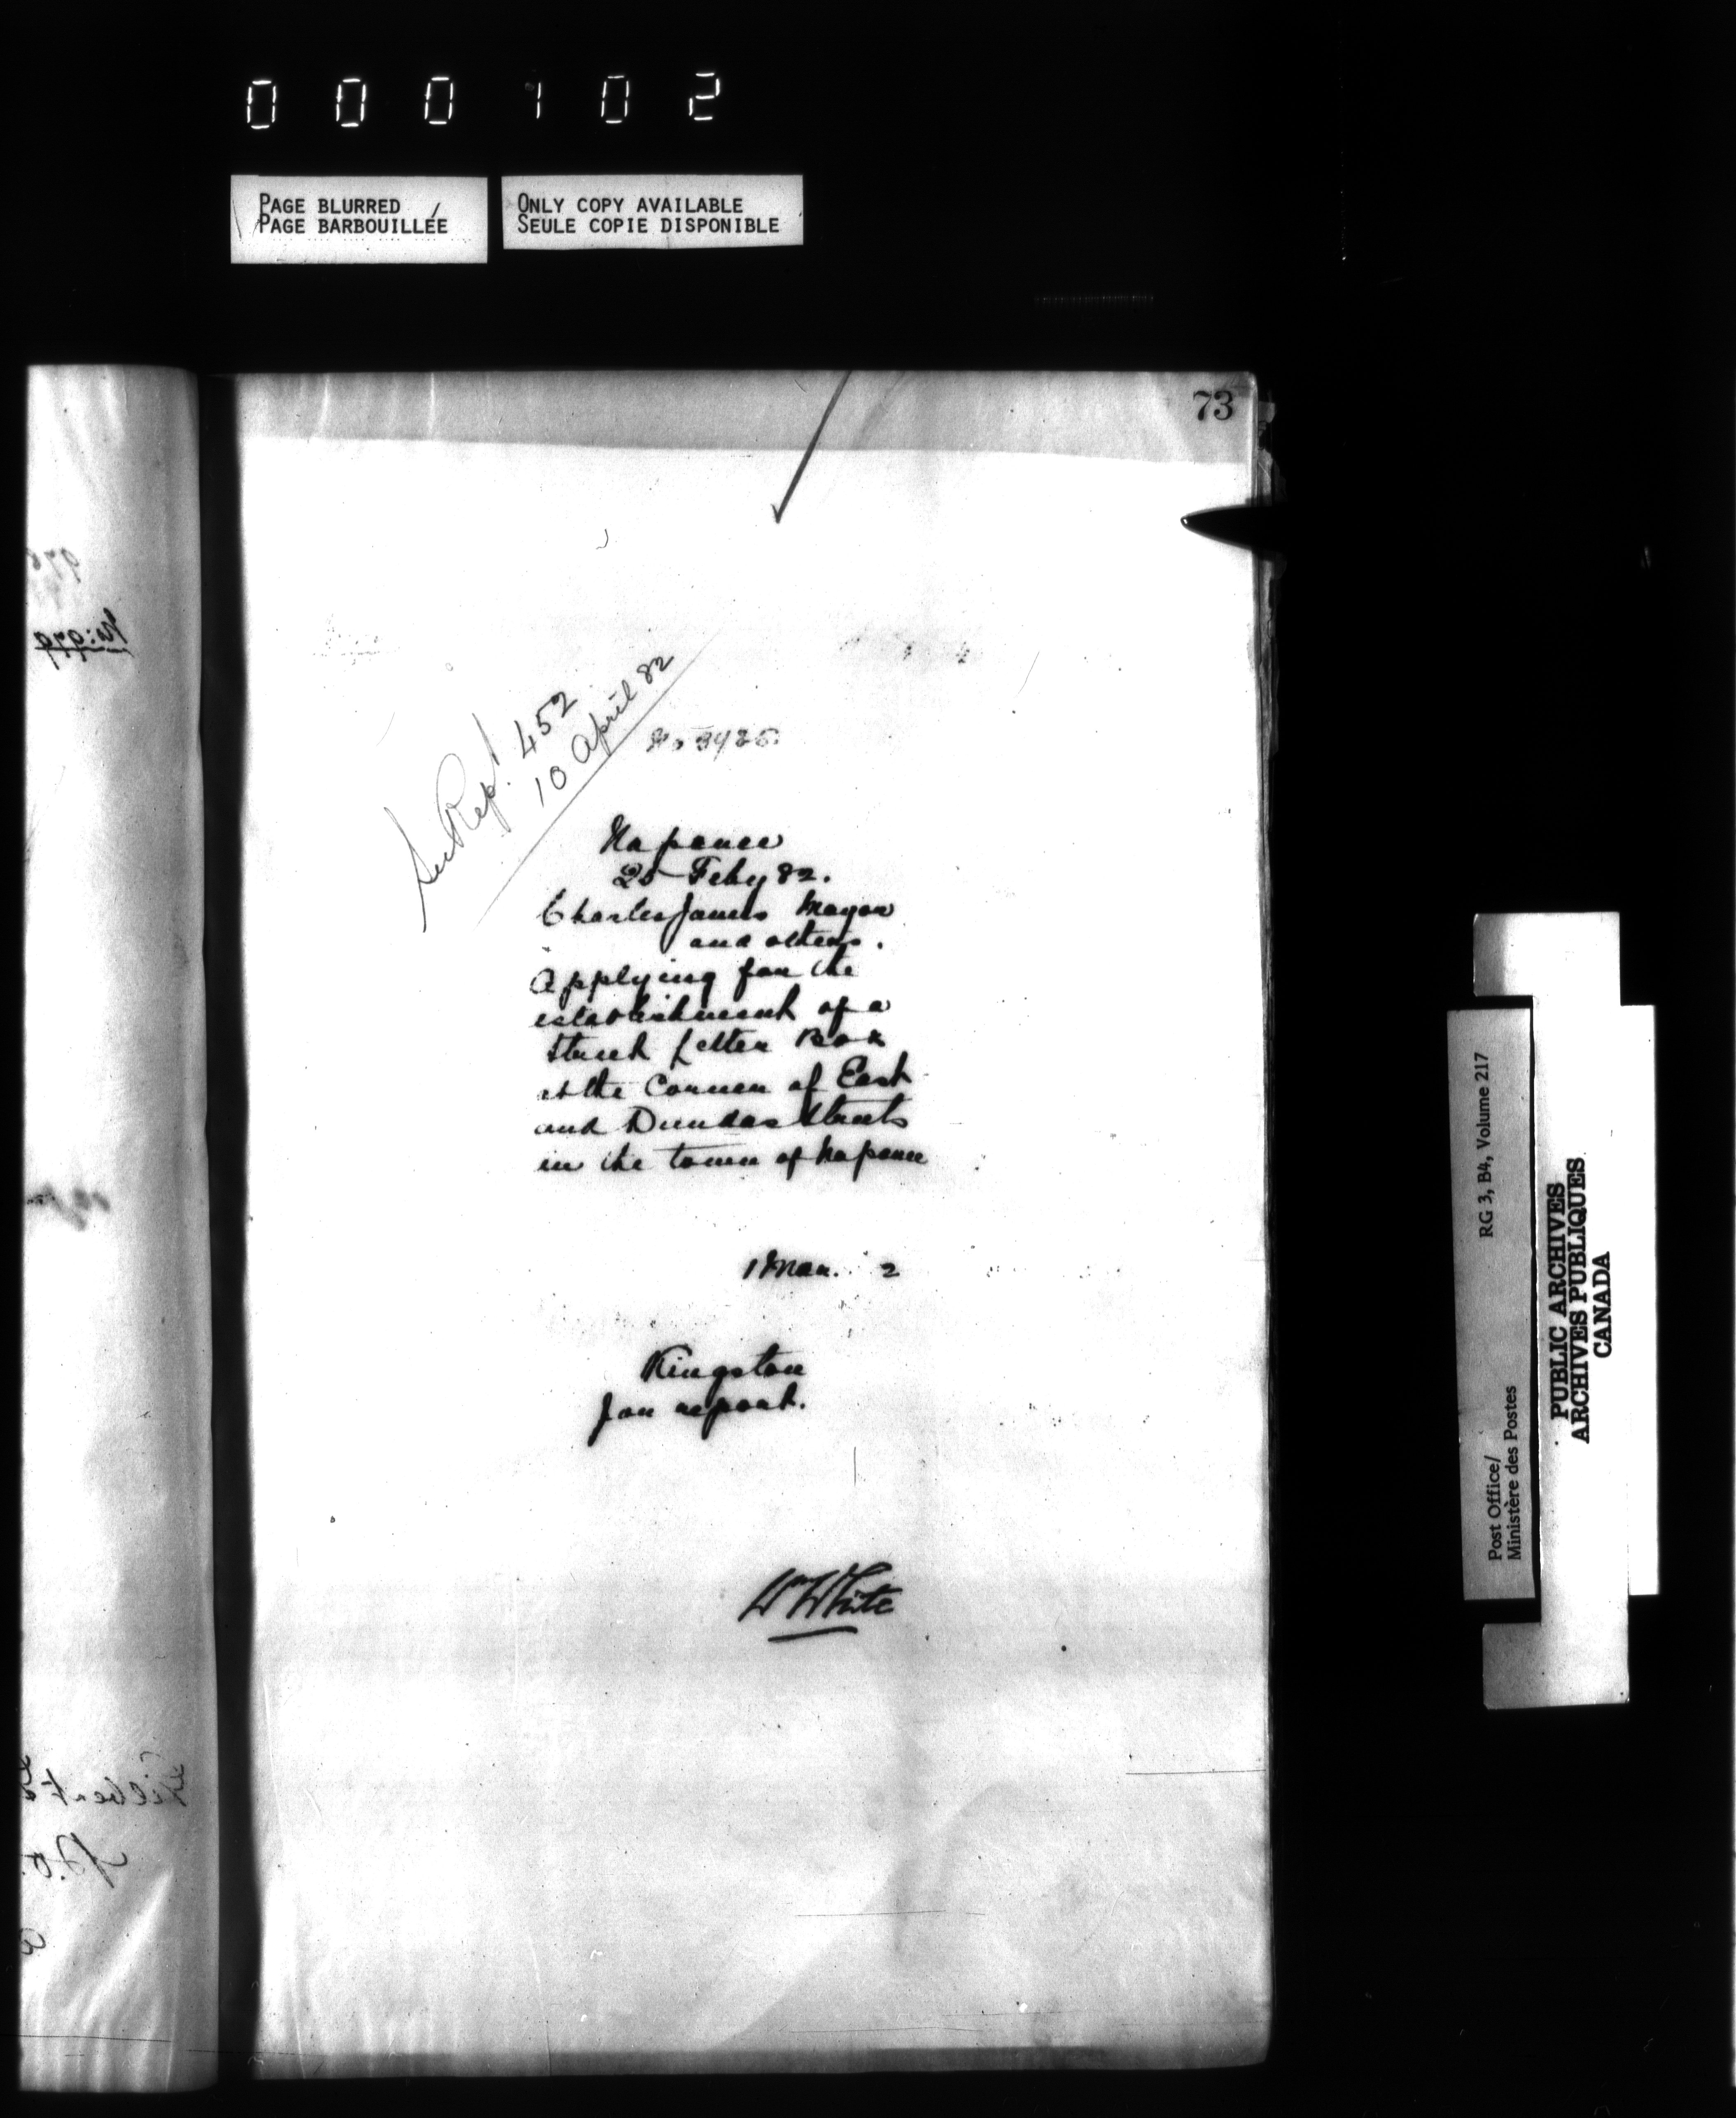 000102
PAGE BLURRED
PAGE BARBOUILLÉE
ONLY COPY AVAILABLE
SEULE COPIE DISPONIBLE
73
See Rep! 452
10 April 82
Napanee
Feby 82.
Charles James Mayor
and others.
Applying for the
establishment of a
Street Letter Box
at the Corner of East
and Dundas Streets
in the town of Napanee
1 Mar. 2
Kingston
for report.
W White
RG 3, B4, Volume 217
Post Office/
Ministère des Postes
PUBLIC ARCHIVES
ARCHIVES PUBLIQUES
CANADA